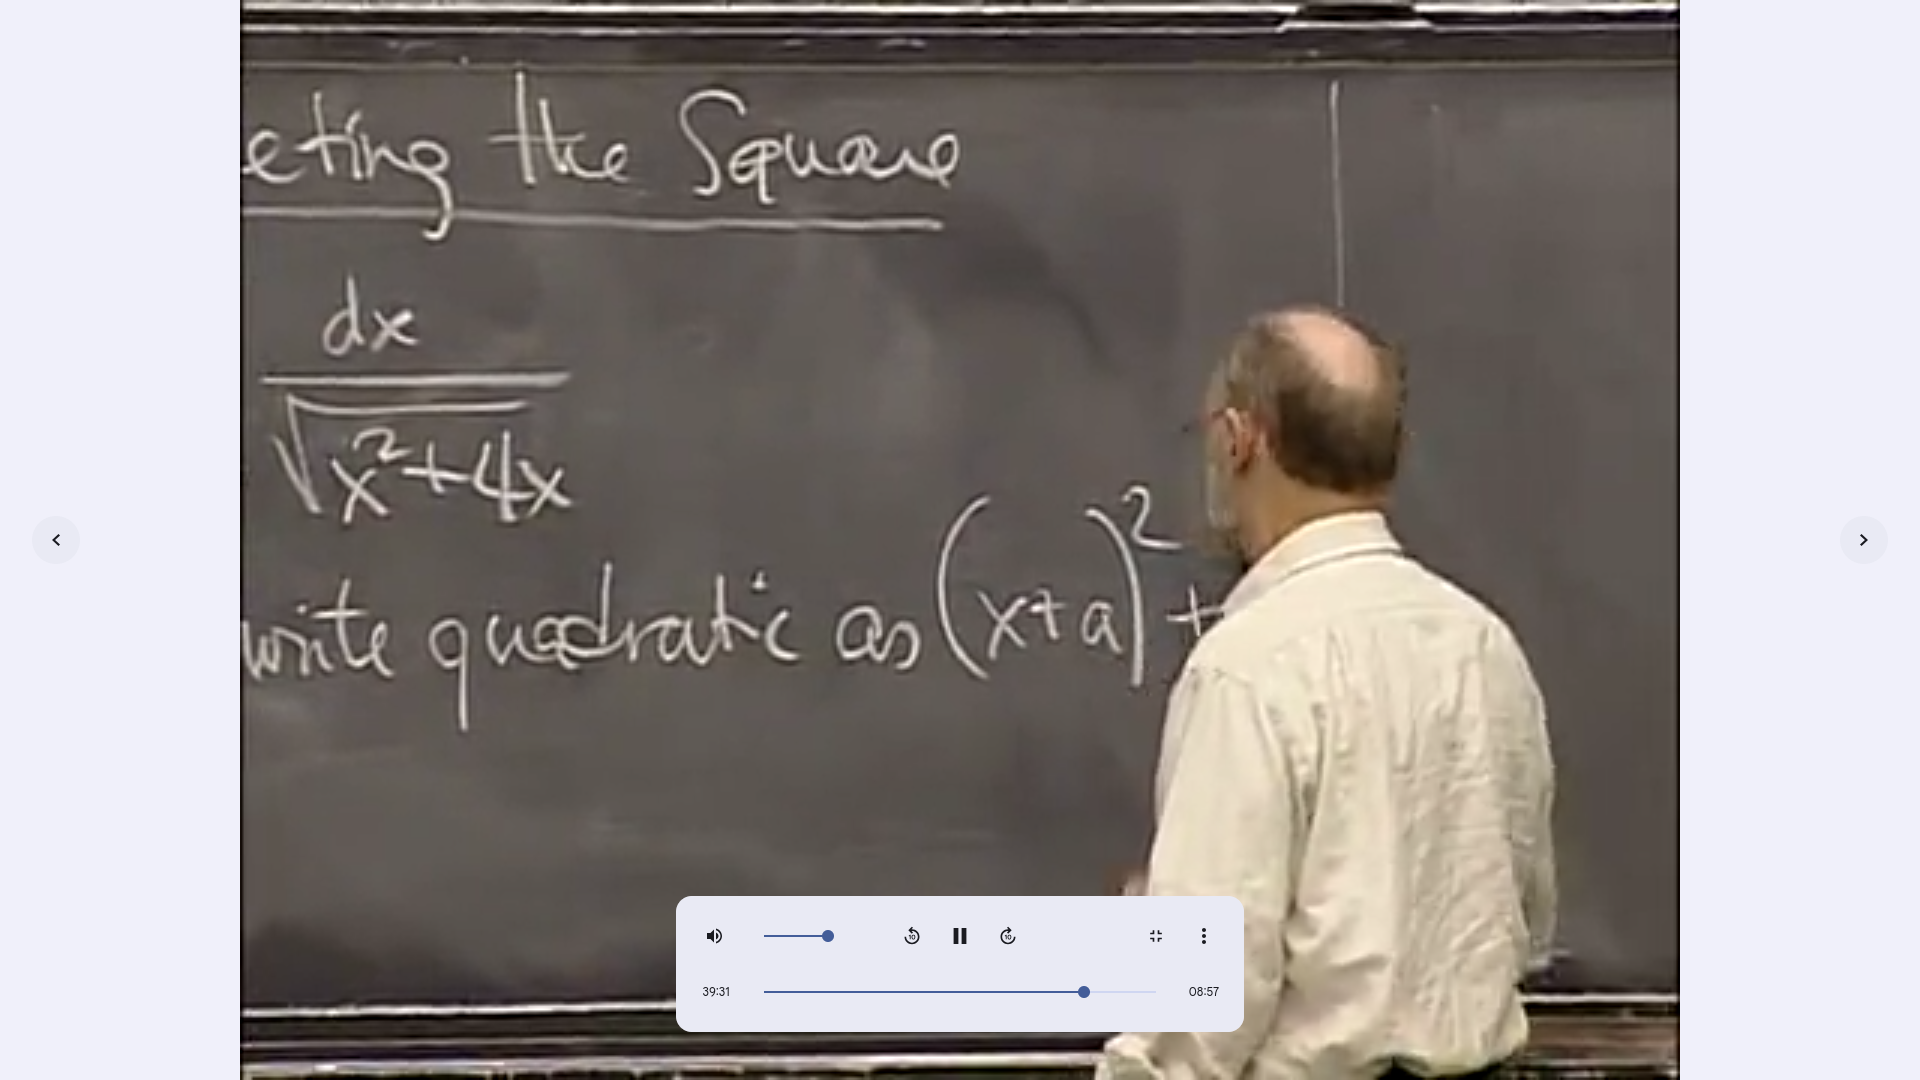 eting the Square
dx
√x²+4x
write quadratic as (x+a)² +
10
10
39:31
08:57